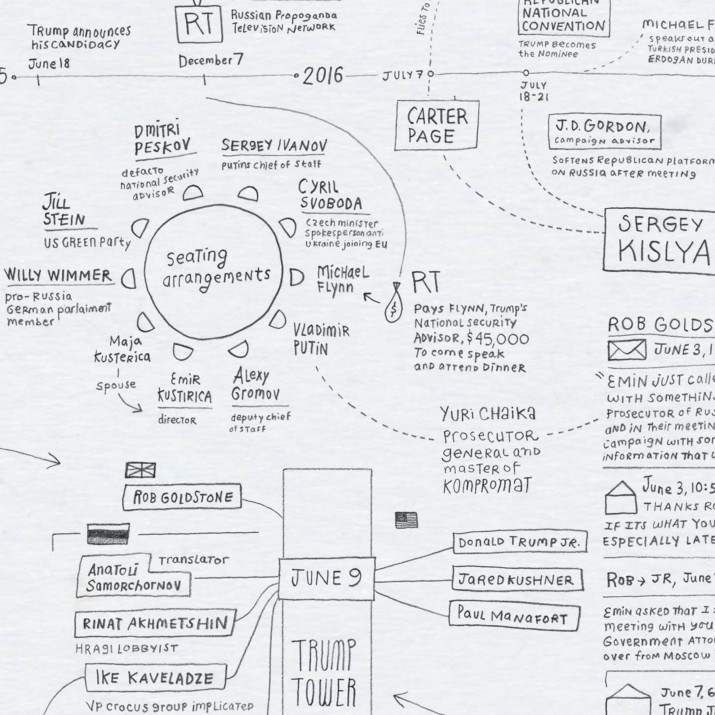 Trump announces
his candidacy
June 18
RT
Russian Propoganda
Television Network
December 7
5
2016
JULY 7
Flies to
REPUBLICAN
NATIONAL
CONVENTION
TRUMP Becomes
the Nominee
JULY
18-21
MICHAEL F
speaks out a
Turkish presid
ERDOGAN DURI
CARTER
PAGE
J.D. GORDON,
campaign advisor
SOFTENS REPUBLICAN PLATFORM
ON RUSSIA AFTER MEETING
SERGEY
KISLYA
DMITRI
PESKOV
defacto
national security
advisor
SERGEY IVANOV
Putins chief of staff
CYRIL
SVOBODA
Czech minister
spokesperson anti
ukraine joining EU
JILL
STEIN
US GREEN Party
seating
arrangements
WILLY WIMMER
pro-Russia
German parlaiment
member
Michael
Flynn
RT
$
PAYS FLYNN, Trump's
National security
Advisor, $45,000
To come speak
and attend Dinner
Vladimir
Putin
Maja
Kusterica
spouse
Emir
Kustirica
director
Alexy
Gromov
deputy chief
of staff
YURI CHAIKA
PROSECUTOR
general and
master of
KOMPROMAT
ROB GOLDS
JUNE 3, 1
"EMIN JUST Calle
WITH SOMETHIN
Prosecutor of Rus
and in their meetin
Campaign with som
information that w
June 3, 10:5
THANKS RO
IF ITS WHAT YOU
ESPECIALLY LATE
ROB → JR, June
Emin asked that I s
meeting with you
Government Attor
over from Moscow
June 7, 6
Trump J
ROB GOLDSTONE
ANATOLI
SAMORCHORNOV
Translator
RINAT AKHMETSHIN
HRAGI LOBBYIST
IKE KAVELADZE
VP crocus group implicated
JUNE 9
TRUMP
TOWER
DONALD TRUMP JR.
JARED KUSHNER
PAUL MANAFORT